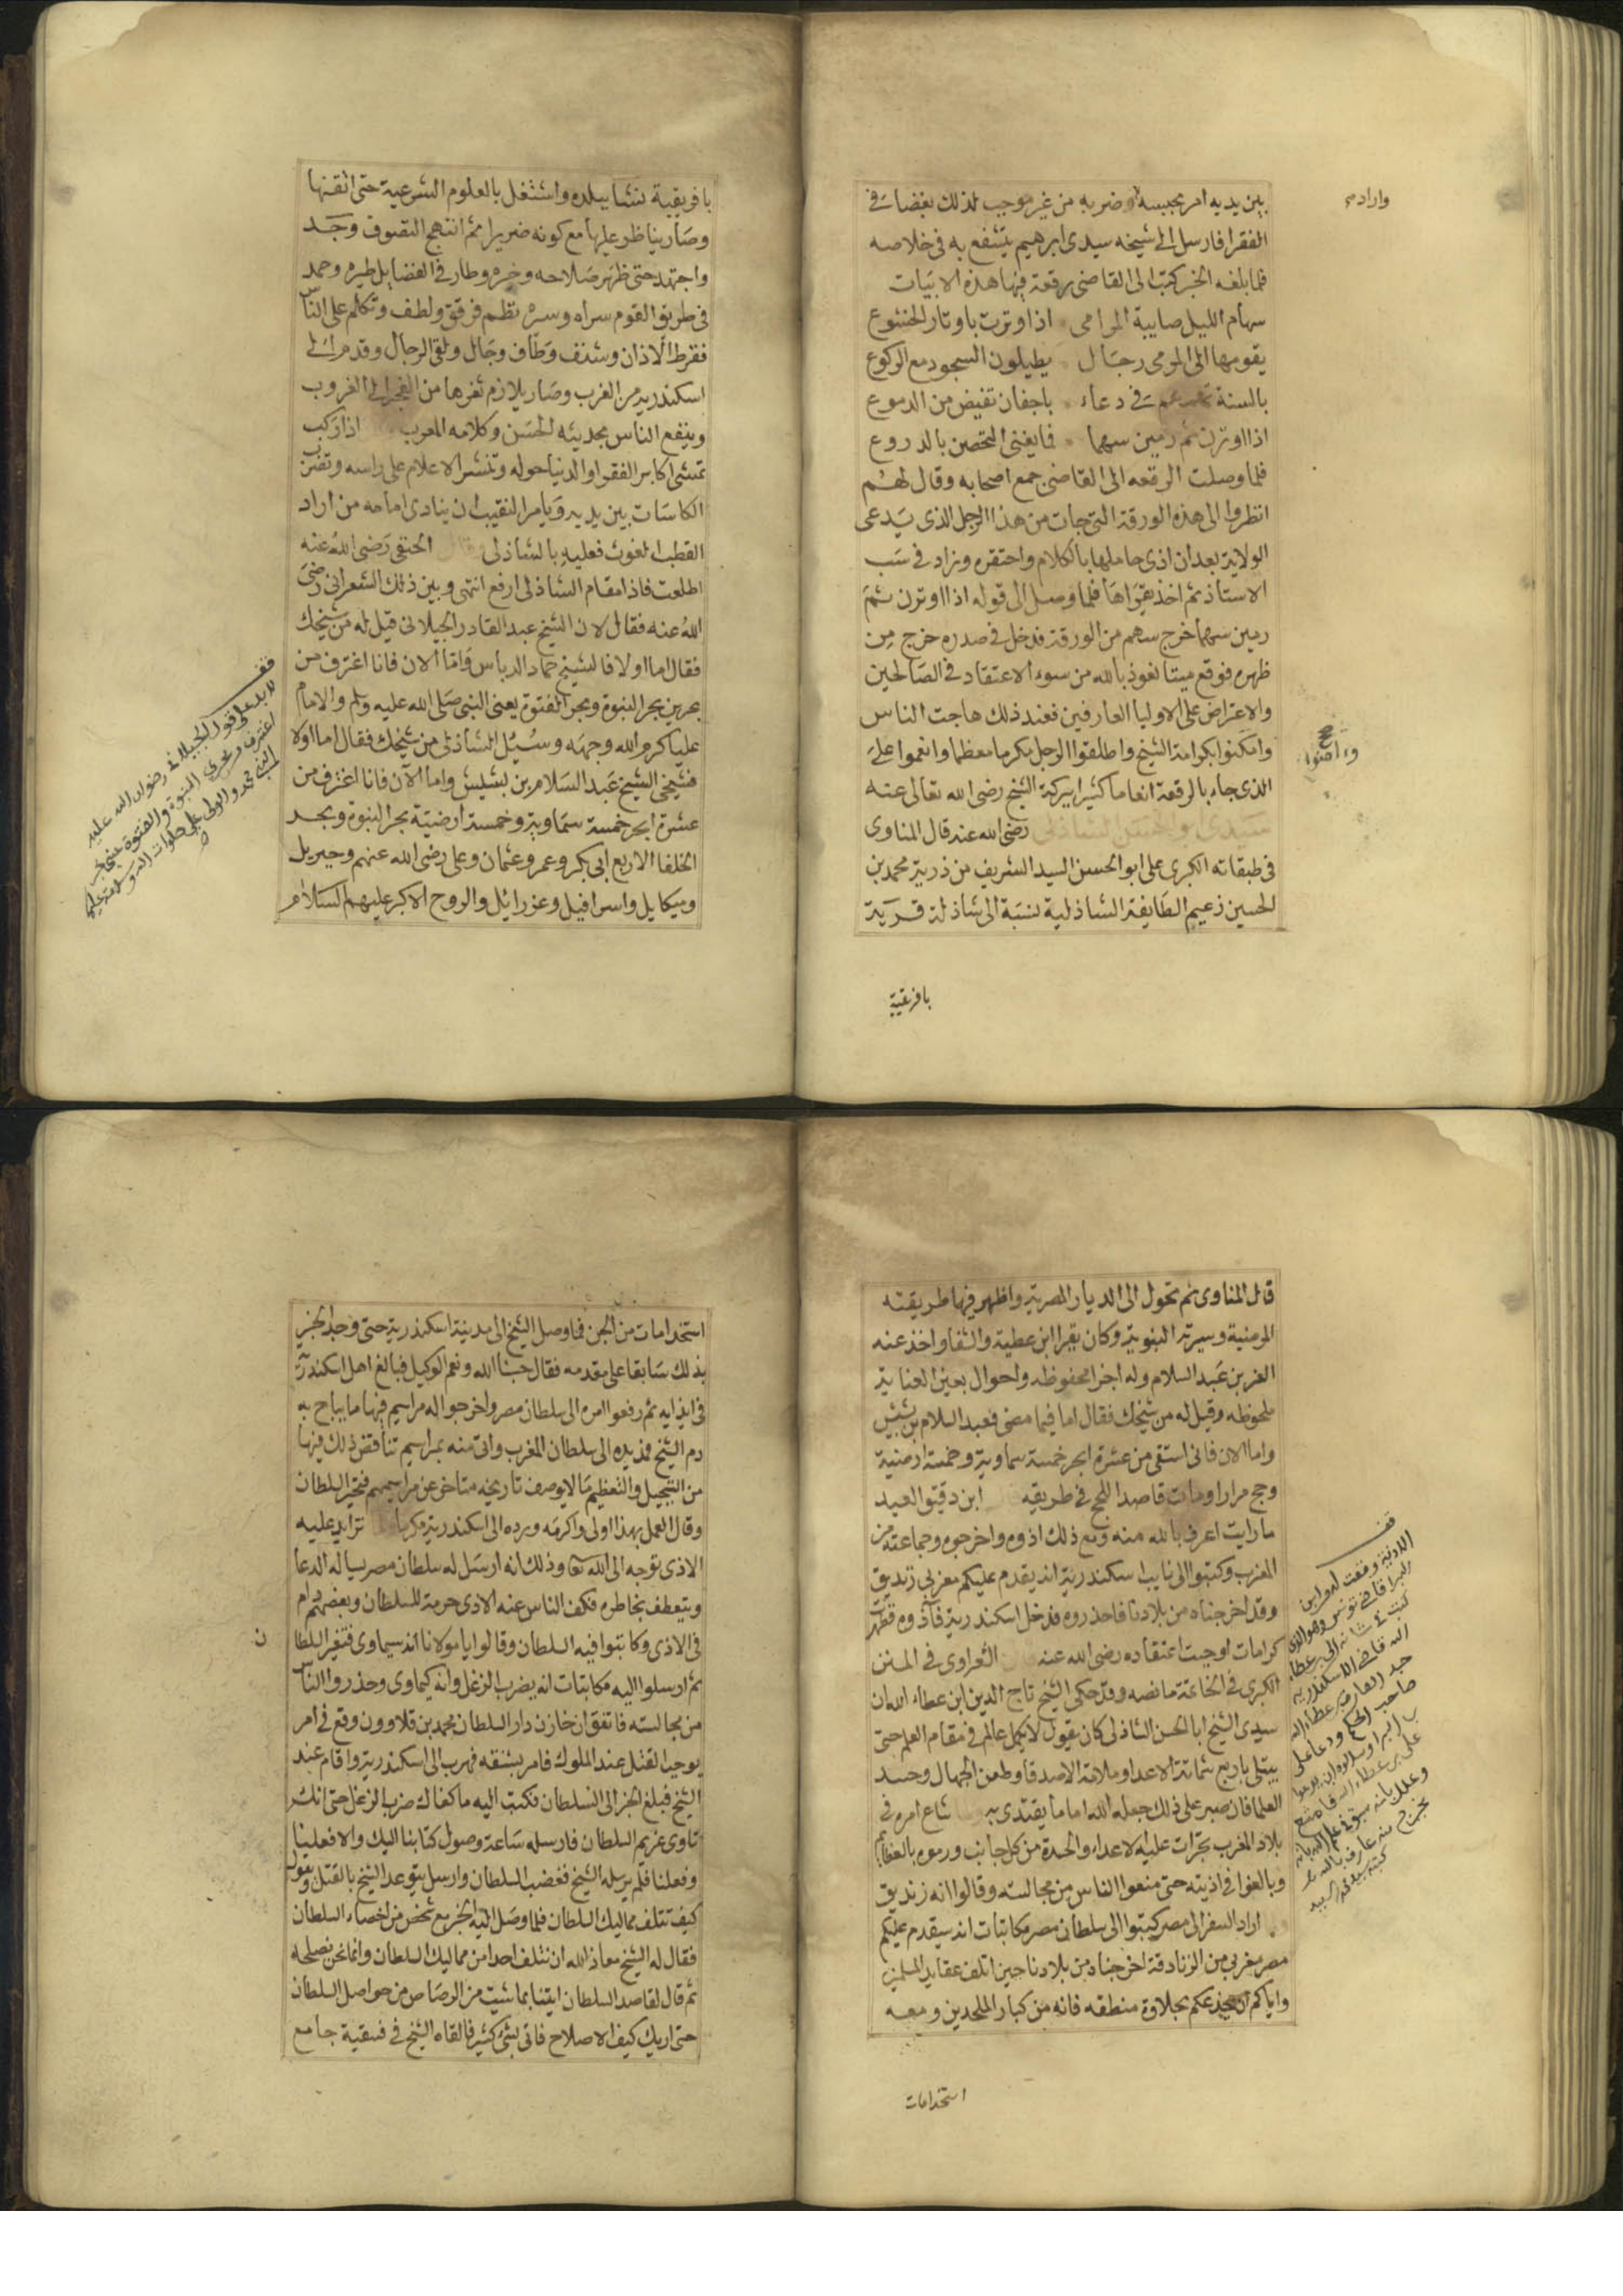 بين يديه امر بحبسه او ضربه من غير موجب لذلك بغضا في
الفقرا فارسل الى شيخه سيدى ابرهيم يتشفع به فى خلاصه
فلما بلغه الخبر كتب الى القاضى رقعة فيها هذه الابيات
سهام الليل صايبة المرامى اذا وترت باوتار الخشوع
يقومها الى المرمى رجال يطيلون السجود مع الركوع
بالسنة فى دعاء باجفان تفيض من الدموع
اذا اوترن ثم رمين سهما فما يغنى التحصن بالدروع
فلما وصلت الرقعه الى القاضى جمع اصحابه وقال لهم
انظروا الى هذه الورقة التى جات من هذا الرجل الذى يدعى
الولاية بعد ان اذى حاملها بالكلام واحتقره وزاد فى سب
الاستاذ ثم اخذ يقراها فلما وصل الى قوله اذا اوترن ثم
رمين سهما خرج سهم من الورقة فدخل فى صدره خرج من
ظهره فوقع ميتا نعوذ بالله من سوء الاعتقاد فى الصالحين
والاعتراض على الاوليا العارفين فعند ذلك هاجت الناس
وامكنوا بكرامة الشيخ واطلقوا الرجل مكرما معظما وانعموا على
الذى جاء بالرقعة انعاما كثيرا ببركة الشيخ رضى الله تعالى عنه
سيدى ابو الحسن الشاذلى رضى الله عنه قال المناوى
فى طبقاته الكبرى على ابو الحسن السيد الشريف من ذرية محمد بن
الحسين زعيم الطايفة الشاذلية نسبة الى شاذلة قرية
بافريقية
واراد
وآمنوا صح
بافريقية نشا ببلده واشتغل بالعلوم الشرعية حتى اتقنها
وصار يناظر عليها مع كونه ضريرا ثم انتهج التصوف وجد
واجتهد حتى ظهر صلاحه وخيره وطار فى الفضايل طيره وحمد
فى طريق القوم سراه وسره نظم فرقق ولطف وتكلم على الناس
فقرط الاذان وشنف وطاف وجال ولقى الرجال وقدم الى
اسكندرية من الغرب وصار يلازم ثغرها من الفجر الى الغروب
وينفع الناس بحديثه الحسن وكلامه المعرب اذا ركب
تمشى اكابر الفقرا والدنيا حوله وتنشر الاعلام على راسه وتضرب
الكاسات بين يديه ويامر النقيب ان ينادى امامه من اراد
القطب الغوث فعليه بالشاذلى قال الحنفى رضى الله عنه
اطلعت فاذا مقام الشاذلى ارفع انتهى وبين ذلك الشعرانى رضى
الله عنه فقال لان الشيخ عبد القادر الجيلانى قيل له من شيخك
فقال اما اولا فالشيخ حماد الدباس واما الان فانا اغترف من
بحرين بحر النبوة وبحر الفتوة يعنى النبى صلى الله عليه وسلم والامام
عليا كرم الله وجهه وسئل الشاذلى من شيخك فقال اما اولا
فشيخى الشيخ عبد السلام بن بشيش واما الآن فانا اغترف من
عشرة ابحر خمسة سماوية وخمسة ارضية بحر النبوة وبحر
الخلفا الاربع ابى بكر وعمر وعثمان وعلى رضى الله عنهم وجبريل
وميكايل واسرافيل وعزرائل والروح الاكبر عليهم السلام
قف
قول الجيلانى رضوان الله عليه
اغترف من بحرى النبوة والفتوة
قال المناوى ثم تحول الى الديار المصرية واظهر فيها طريقته
المرضية وسيرته النبوية وكان يقرا ابن عطية والشفا واخذ عنه
العز بن عبد السلام وله احزاب محفوظه واحوال بعين العناية
ملحوظه وقيل له من شيخك فقال اما فيما مضى فعبد السلام بن بشيش
واما الان فانى استقى من عشرة ابحر خمسة سماوية وخمسة ارضية
وحج مرارا ومات قاصدا للحج فى طريقه ابن دقيق العيد
ما رايت اعرف بالله منه ومع ذلك اذوه واخرجوه وجماعته من
المغرب وكتبوا الى نايب اسكندرية انه يقدم عليكم مغربى زنديق
وقد اخرجناه من بلادنا فاحذروه فدخل اسكندرية فآذوه فظهرت
كرامات اوجبت اعتقاده رضى الله عنه قال الشعراوى فى المنن
الكبرى فى الخاتمة ما نصه وقد حكى الشيخ تاج الدين ابن عطاء الله ان
سيدى الشيخ ابا الحسن الشاذلى كان يقول لا يكمل عالم فى مقام العلم حتى
يبتلى باربع شماتة الاعدا وملامة الاصدقا وطعن الجهال وحسد
العلما فان صبر على ذلك جعله الله اماما يقتدى به شاع امره فى
بلاد المغرب تجرات عليه الاعداء والحسدة من كل جانب ورموه بالعظايم
وبالغوا فى اذيته حتى منعوا الناس من مجالسته وقالوا انه زنديق
اراد السفر الى مصر كتبوا الى سلطان مصر مكاتبات انه سيقدم عليكم
مصر مغربى من الزنادقة اخرجناه من بلادنا حين اتلف عقايد المسلمين
واياكم ان يخدعكم بحلاوة منطقه فانه من كبار الملحدين ومعه
استخدامات
قف
استخدامات من الجن فما وصل الشيخ الى مدينة اسكندرية حتى وجد الخبر
بذلك سابقا على مقدمه فقال حسبنا الله ونعم الوكيل فبالغ اهل اسكندرية
فى ايذايه ثم رفعوا امره الى سلطان مصر واخرجوا له مراسيم فيها ما يباح به
دم الشيخ فمد يده الى سلطان المغرب واتى منه بمراسيم تناقض ذلك فيها
من التبجيل والتعظيم ما لا يوصف تاريخه متاخر عن مراسيمهم فتحير السلطان
وقال العمل بهذا اولى واكرمه ورده الى اسكندرية مكرما تزايد عليه
الاذى توجه الى الله تعا وذلك انه ارسل له سلطان مصر يساله الدعا
ويتعطف بخاطره فكف الناس عنه الاذى حرمة للسلطان وبعضهم دام
فى الاذى وكاتبوا فيه السلطان وقالوا يا مولانا انه سيماوى فتغير السلطا
ن
ثم ارسلوا اليه مكاتبات انه يضرب الزغل وانه كيماوى وحذروا الناس
من مجالسته فاتفق ان خازن دار السلطان محمد بن قلاوون وقع فى امر
يوجب القتل عند الملوك فامر بشنقه فهرب الى اسكندرية واقام عند
الشيخ فبلغ الخبر الى السلطان فكتب اليه ما كفاك ضرب الزغل حتى انك
تاوى غريم السلطان فارسله ساعة وصول كتابنا اليك والا فعلنا
وفعلنا فلم يرسله الشيخ فغضب السلطان وارسل يتوعد الشيخ بالقتل ويقول
كيف تتلف مماليك السلطان فلما وصل اليه الخبر مع شخص من اخصاء السلطان
فقال له الشيخ معاذ الله ان نتلف احدا من مماليك السلطان وانما نحن نصلحه
ثم قال لقاصد السلطان ايتنا بما شيت من الرصاص من حواصل السلطان
حتى اريك كيف الاصلاح فاتى بشئ كثير فالقاه الشيخ فى فسقية جامع